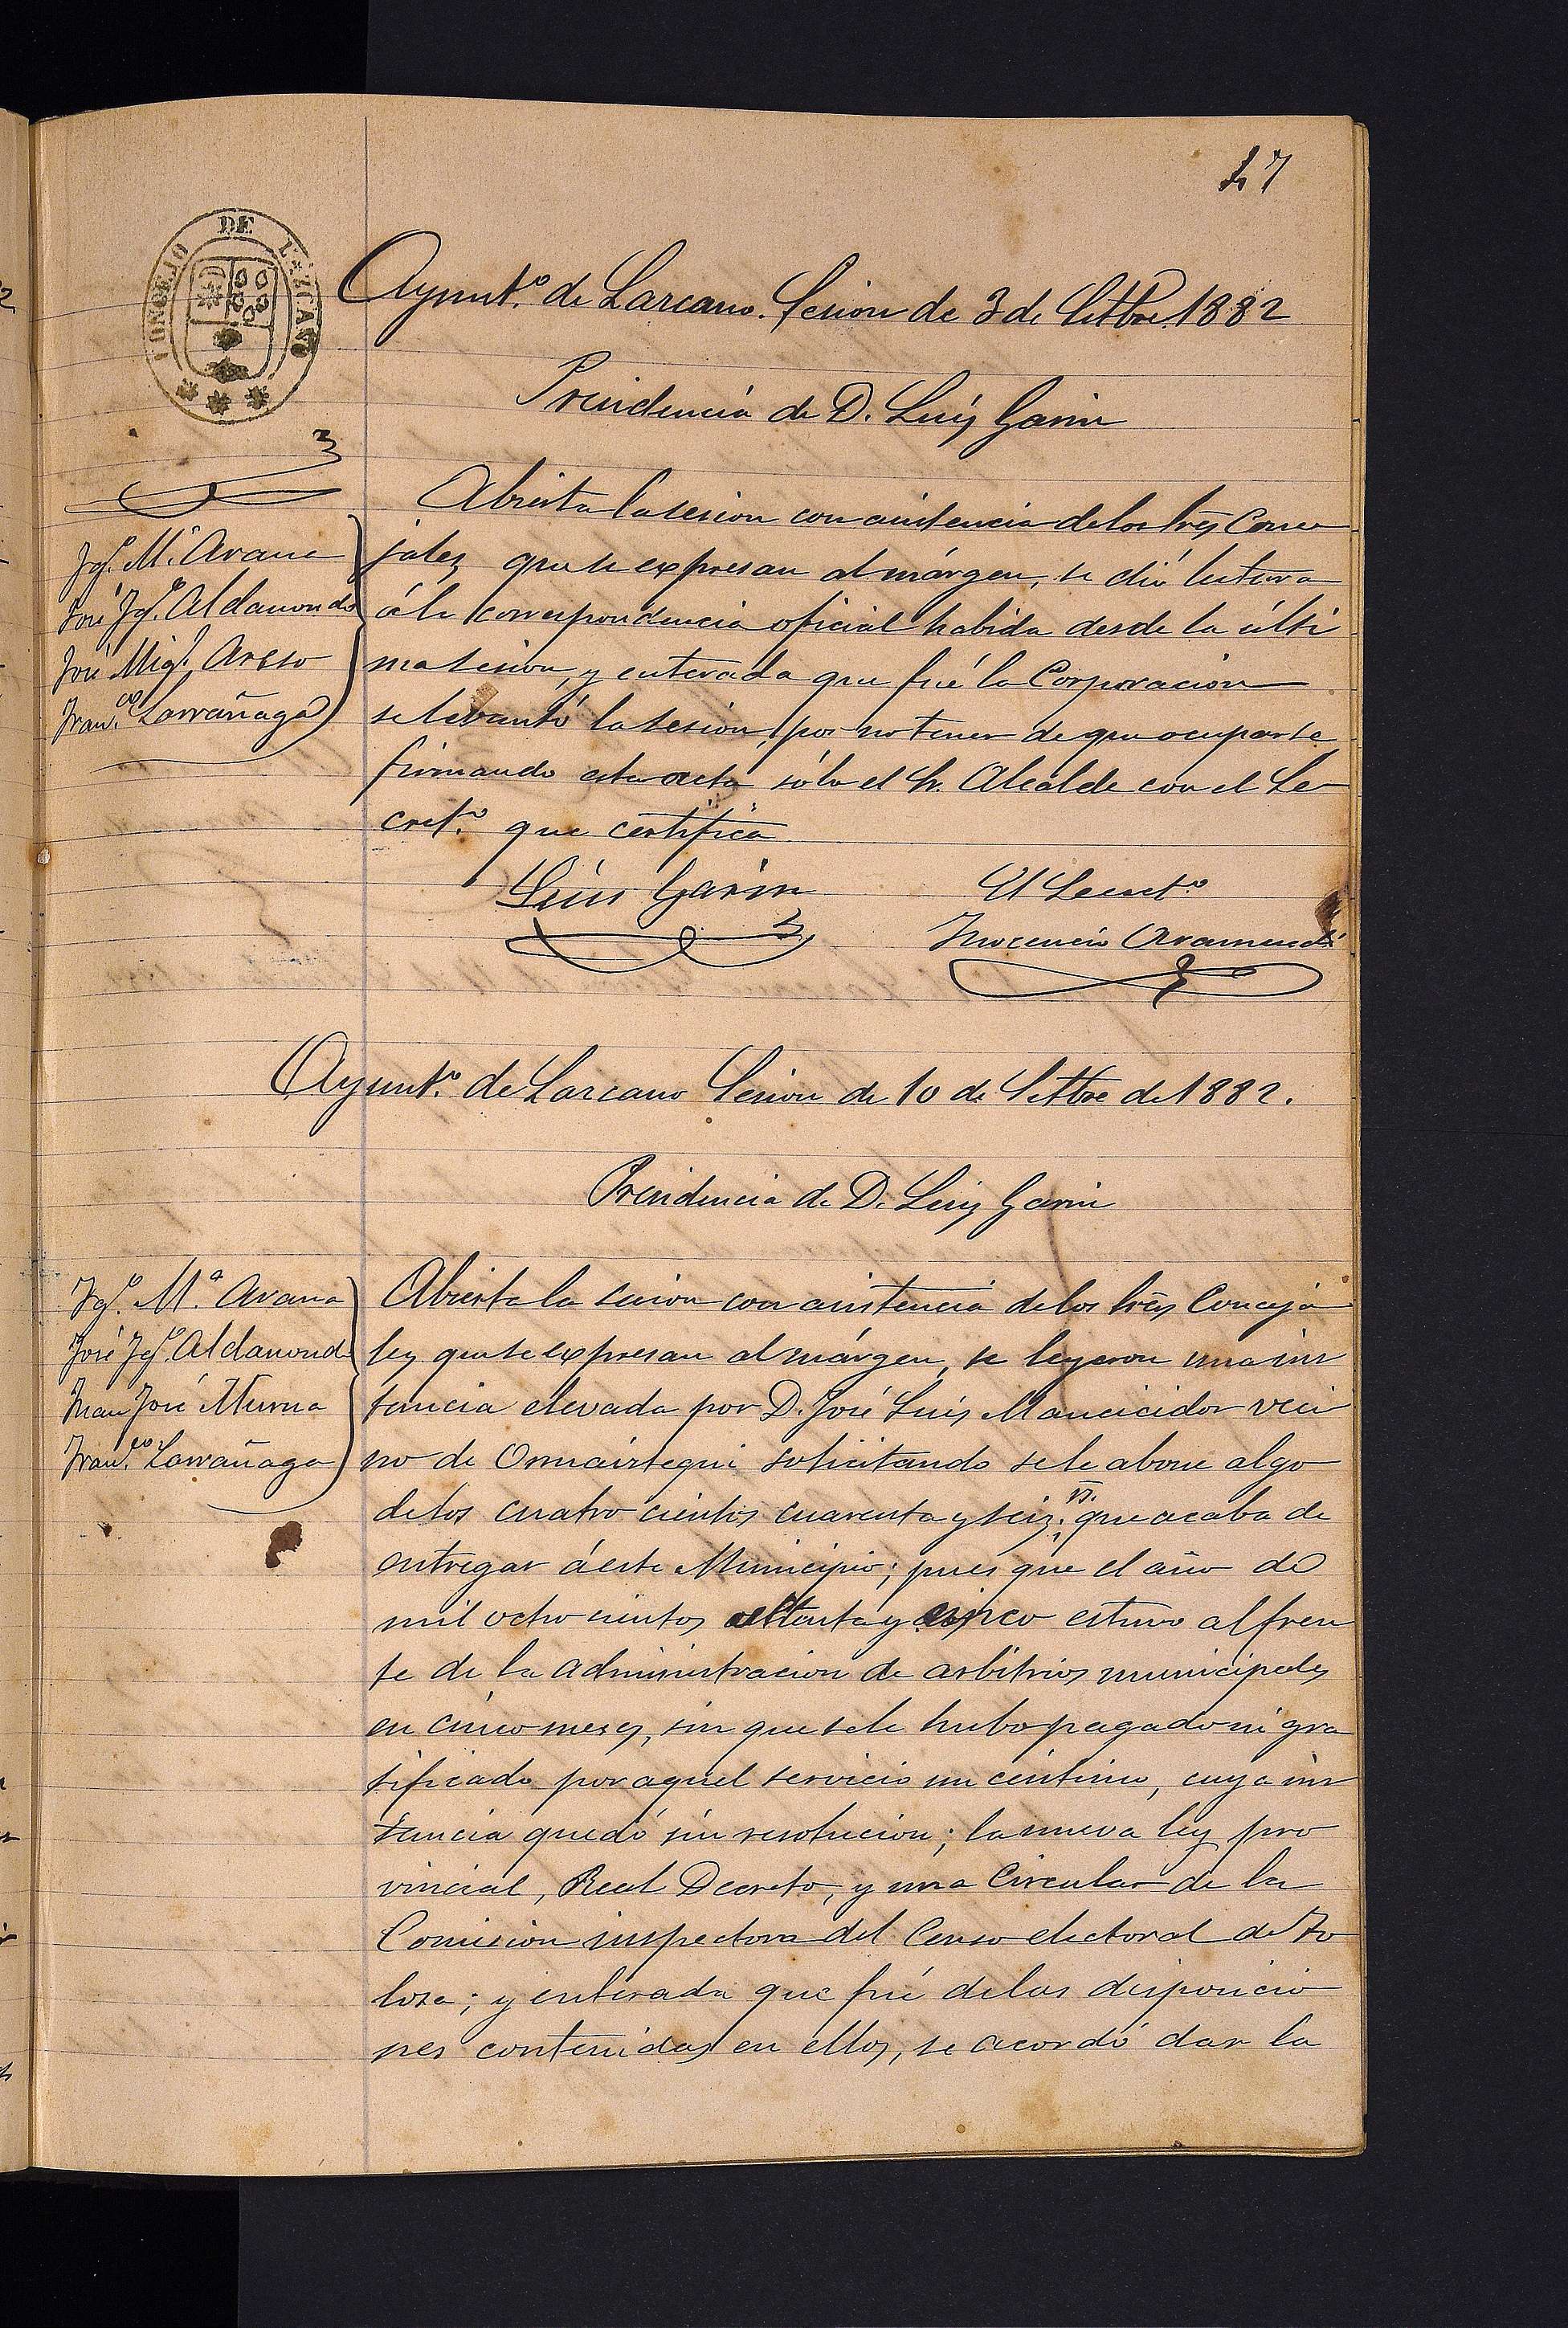 47
CONCEJO DE LAZCANO
Ayunt.º de Lazcano. Sesion de 3 de Setbre. 1882
Presidencia de D. Luis Garin
Igº Mª Arana
José Igº Aldanondo
José Migl. Areso
Fran.co Larrañaga
Abierta la sesion con asistencia de los Sres Conce
jales que se expresan al márgen, se dió lectura
á la correspondencia oficial habida desde la últi
ma sesion, y enterada que fué la Corporacion
se levantó la sesion, por no tener de que ocuparse
firmando esta acta sólo el Sr. Alcalde con el Se-
cret.º que certifica
Luis Garin
El Secret.º
Inocencio Aramendi
Ayunt.º de Lazcano Sesion de 10 de Setbre de 1882.
Presidencia de D. Luis Garin
Igº Mª Arana
José Igº Aldanond
Juan José
Fran.co Larrañaga
Abierta la sesion con asistencia de los Sres Conceja
les que se expresan al márgen, se leyeron una ins
tancia elevada por D. José Luis Mancicidor veci
no de Ormáiztegui solicitando se le abone algo
de los cuatro cientos cuarenta y seis rs. que acaba de
entregar á este Municipio; pues que el año de
mil ocho cientos setenta y cinco estuvo al fren
te de la administracion de arbitrios municipales
en cinco meses, sin que se le hubo pagado ni gra
tificado por aquel servicio un céntimo, cuya ins
tancia quedó sin resolucion; la nueva ley pro
vincial, Real Decreto, y una Circular de la
Comision inspectora del Censo electoral de To
losa; y enterada que fué de las disposicio
nes contenidas en ellos, se acordó dar la